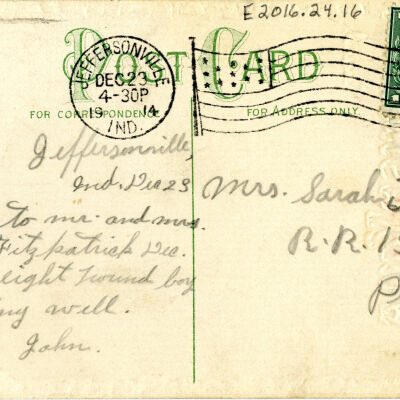 E2016.24.16
POST CARD
JEFFERSONVILLE
DEC 23
4-30P
19 14
IND.
FOR CORRESPONDENCE
FOR ADDRESS ONLY.
Jeffersonville,
Ind. Dec 23
to mr. and mrs.
Fitzpatrick Dec.
eight pound boy
well.
John.
Mrs. Sarah
R.R.